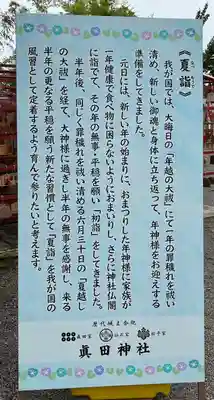 《夏詣》
我が国では、大晦日の「年越の大祓」にて一年の罪穢れを祓い
清め、新しい御魂と身体に立ち返って、年神様をお迎えする
準備をしてきました。
元日には、新しい年の始まりに、おまつりした年神様に家族が
一年健康で食べ物に困らないようにおまいりし、さらに神社仏閣
に詣でて、その年の無事・平穏を願い「初詣」をしてきました。
半年後、同じく罪穢れを祓い清める六月三十日の「夏越し
の大祓」を経て、大神様に過ぎし半年の無事を感謝し、来る
半年の更なる平穏を願う新たな習慣として「夏詣」を我が国の
風習として定着するよう育んで参りたいと考えます。
歴代城主合祀
真田家
仙石家
松平家
眞田神社